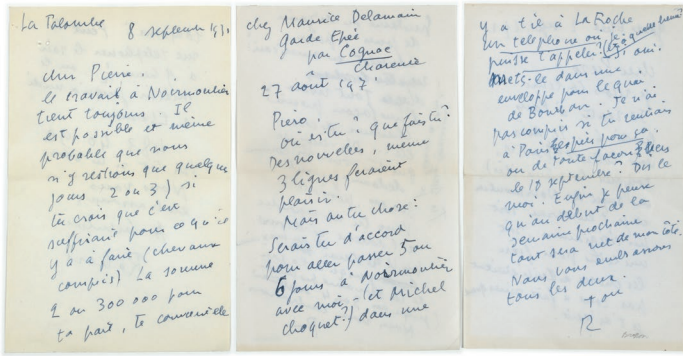 La Talombe 8 septembre 1970
cher Pierre.
le travail à Noirmoutier
tient toujours. Il
est possible et même
probable que nous
n'y restions que quelques
jours 2 ou 3) si
tu crois que c'est
suffisant pour ce qu'il
y a à faire (chevaux
compris) La somme
2 ou 300 000 pour
ta part, te convient-elle
chez Maurice Delamain
Garde Epée
par Cognac
Charente
27 août 197
Piero.
où es-tu? que fais-tu?
Des nouvelles, même
3 lignes feraient
plaisir.
Mais autre chose:
Serais-tu d'accord
pour aller passer 5 ou
6 jours à Noirmoutier
avec moi - (et Michel
choquet?) dans une
y a t-il à La Roche
un telephone où je
puisse t'appeler? (et à quelle heure?)
Si oui.
Mets-le dans une
enveloppe pour le quai
de Bourbon. Je n'ai
pas compris si tu rentrais
à Paris exprès pour ça.
ou de toute façon vers
le 10 septembre? Dis le
moi. Enfin je pense
qu'au début de la
semaine prochaine
tout sera net de mon côté.
Nous vous embrassons
tous les deux.
R